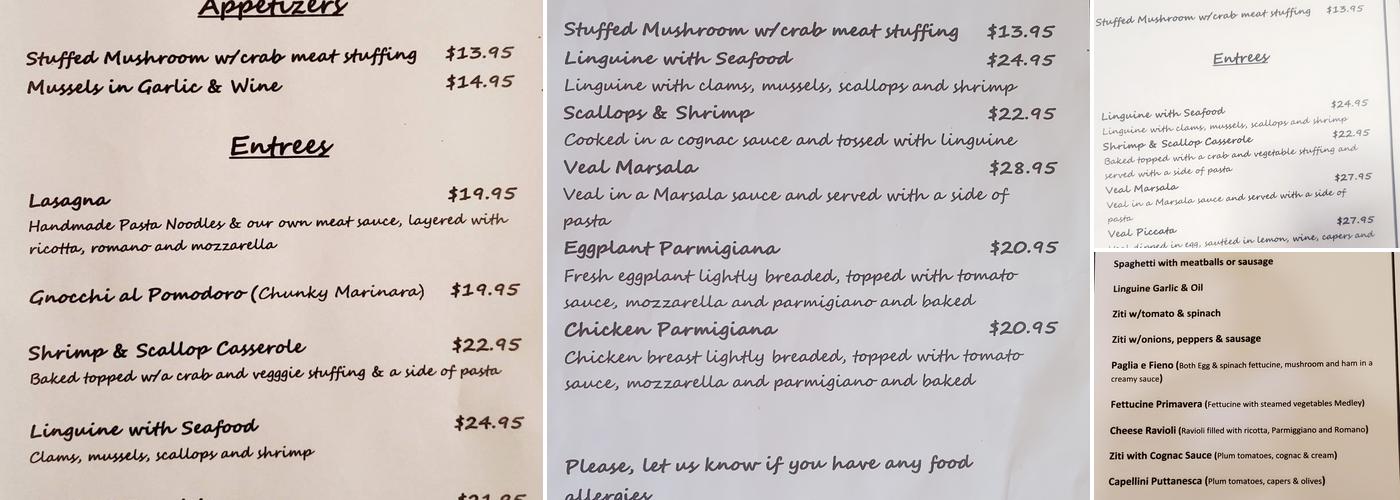 Appetizers
Stuffed Mushroom w/crab meat stuffing $13.95
Mussels in Garlic & Wine $14.95
Entrees
Lasagna $19.95
Handmade Pasta Noodles & our own meat sauce, layered with
ricotta, romano and mozzarella
Gnocchi al Pomodoro (Chunky Marinara) $19.95
Shrimp & Scallop Casserole $22.95
Baked topped w/a crab and vegggie stuffing & a side of pasta
Linguine with Seafood $24.95
Clams, mussels, scallops and shrimp
Stuffed Mushroom w/crab meat stuffing $13.95
Linguine with Seafood $24.95
Linguine with clams, mussels, scallops and shrimp
Scallops & Shrimp $22.95
Cooked in a cognac sauce and tossed with linguine
Veal Marsala $28.95
Veal in a Marsala sauce and served with a side of
pasta
Eggplant Parmigiana $20.95
Fresh eggplant lightly breaded, topped with tomato
sauce, mozzarella and parmigiano and baked
Chicken Parmigiana $20.95
Chicken breast lightly breaded, topped with tomato
sauce, mozzarella and parmigiano and baked
Please, let us know if you have any food
allergies
Stuffed Mushroom w/crab meat stuffing $13.95
Entrees
Linguine with Seafood $24.95
Linguine with clams, mussels, scallops and shrimp
Shrimp & Scallop Casserole $22.95
Baked topped with a crab and vegetable stuffing and
served with a side of pasta
Veal Marsala $27.95
Veal in a Marsala sauce and served with a side of
pasta
Veal Piccata $27.95
Veal dipped in egg, sautéed in lemon, wine, capers and
Spaghetti with meatballs or sausage
Linguine Garlic & Oil
Ziti w/tomato & spinach
Ziti w/onions, peppers & sausage
Paglia e Fieno (Both Egg & spinach fettucine, mushroom and ham in a
creamy sauce)
Fettucine Primavera (Fettucine with steamed vegetables Medley)
Cheese Ravioli (Ravioli filled with ricotta, Parmiggiano and Romano)
Ziti with Cognac Sauce (Plum tomatoes, cognac & cream)
Capellini Puttanesca (Plum tomatoes, capers & olives)